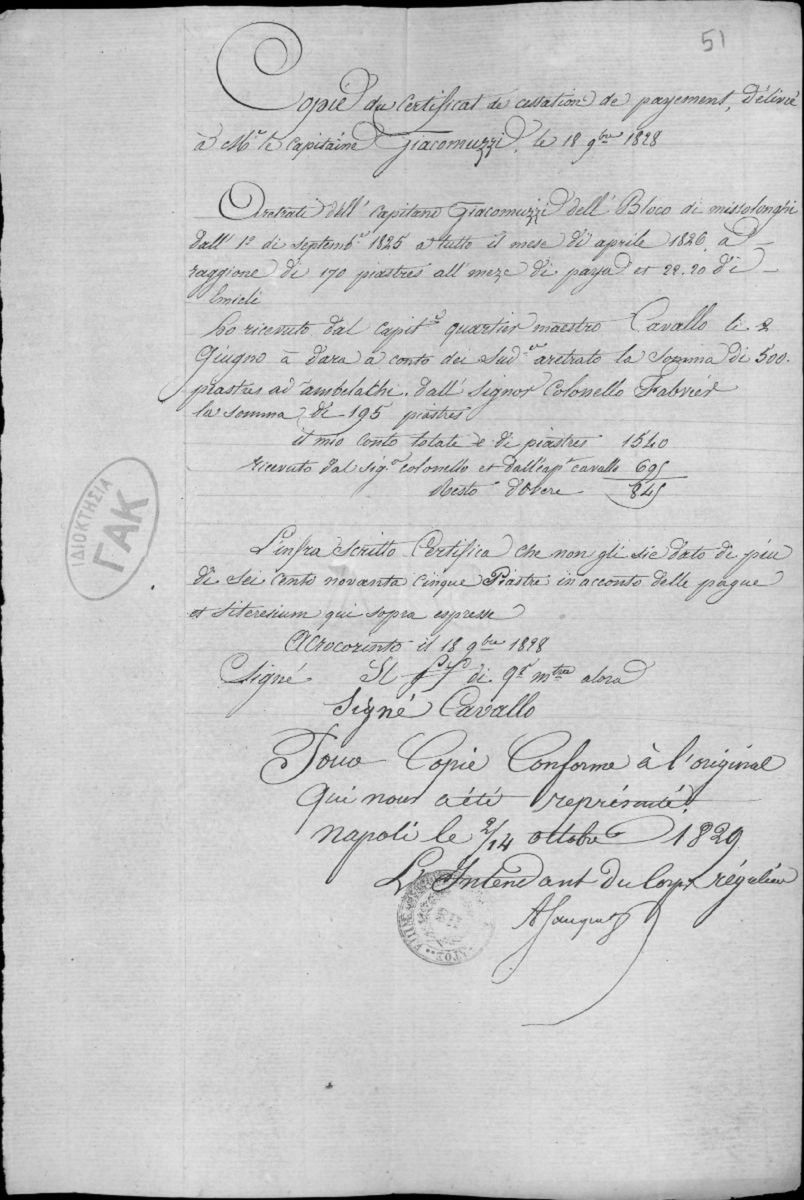 51
Copie du certificat de cessation de payement, délivré
à Mr le capitaine Giacomuzzi, le 18 9bre 1828
Aretrati dell' capitano Giacomuzzi dell' Bloco di missolonghi
dall' 1o di septembre 1825 a tutto il mese di aprile 1826, a
raggione di 170 piastres all' meze di paya et 22.20 di
Ho ricevuto dal capite quartier maestro Cavallo li 2
Giugno à dara à conto dei sud. aretrato la somma di 500.
piastres ad ambelakhi, dall' signor Colonello Fabvier
la somma di 195 piastres
il mio conto totale e di piastres 1540
ricevuto dal sigo colonello et dall' capt cavallo 695
Resto d'overe 845
ΙΔΙΟΚΤΗΣΙΑ
ΓΑΚ
L'infra scritto Certifica che non gli sie dato di piu
di sei cento novanta cinque Piastre in acconto delle pague
et siteresium qui sopra espresse
Acrocorinto il 18 9bre 1828
Signé Il di qr mtro alora
Signé Cavallo
Pour Copie Conforme à l'original
qui nous a été représenté.
napoli le 2/14 ottobre 1829
L'Intendant du Corps régulier